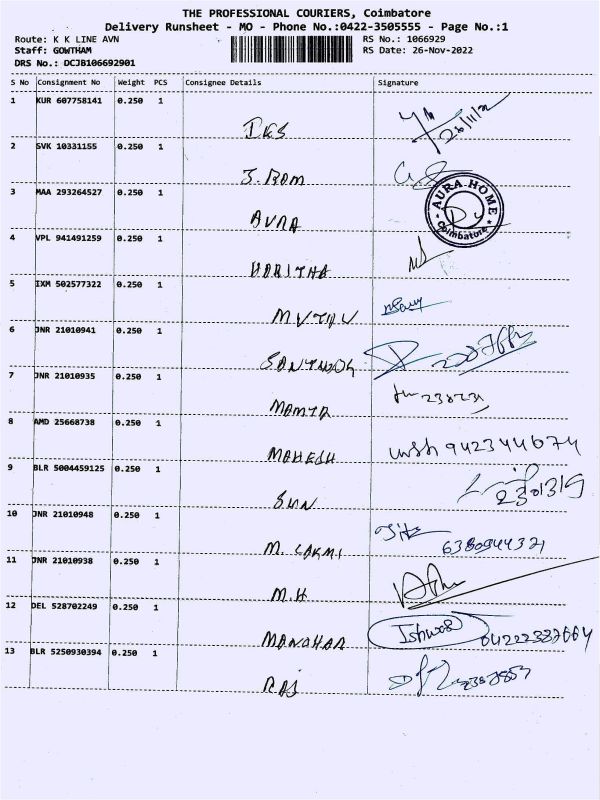 THE PROFESSIONAL COURIERS, Coimbatore
Delivery Runsheet - MO - Phone No.:0422-3505555 - Page No.:1
Route: K K LINE AVN
RS No.: 1066929
Staff: GOWTHAM
RS Date: 26-Nov-2022
DRS No.: DCJB106692901
S No Consignment No Weight PCS Consignee Details Signature
1 KUR 607758141 0.250 1
26/11/22
2 SVK 10331155 0.250 1
J. ROM
3 MAA 293264527 0.250 1
AURA HOME
Coimbatore
AVRA
4 VPL 941491259 0.250 1
HARITHA
5 IXM 502577322 0.250 1
6 JNR 21010941 0.250 1
SANTHOSH
7 JNR 21010935 0.250 1
MAMTA
238231
8 AMD 25668738 0.250 1
MAHESH
9423441674
9 BLR 5004459125 0.250 1
SUN
2301319
10 JNR 21010948 0.250 1
M. LAKMI
6380944321
11 JNR 21010938 0.250 1
M.H
12 DEL 528702249 0.250 1
MANOHAR
Ishwar
04222387664
13 BLR 5250930394 0.250 1
RAJ